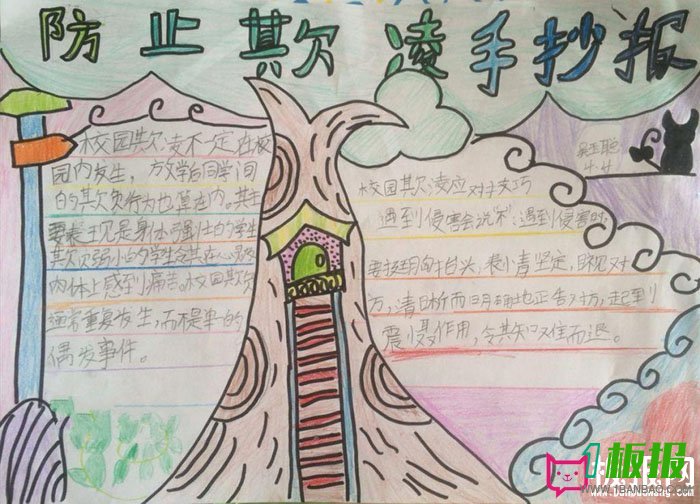 防止欺凌手抄报
校园欺凌不一定在校
园内发生，放学后同学间
的欺负行为也算在内。其主
要表现是身体强壮的学生
欺负弱小的学生令其在心灵
肉体上感到痛苦。校园欺负
通常重复发生，而不是单一的
偶发事件。
4.4
校园欺凌应对技巧
遇到侵害会说"不"：遇到侵害时，
要挺胸抬头，表情坚定，眼见对
方，清晰而明确地正告对方，起到
震慑作用，令其知难而退。
1板报
WWW.1BANBAO.COM